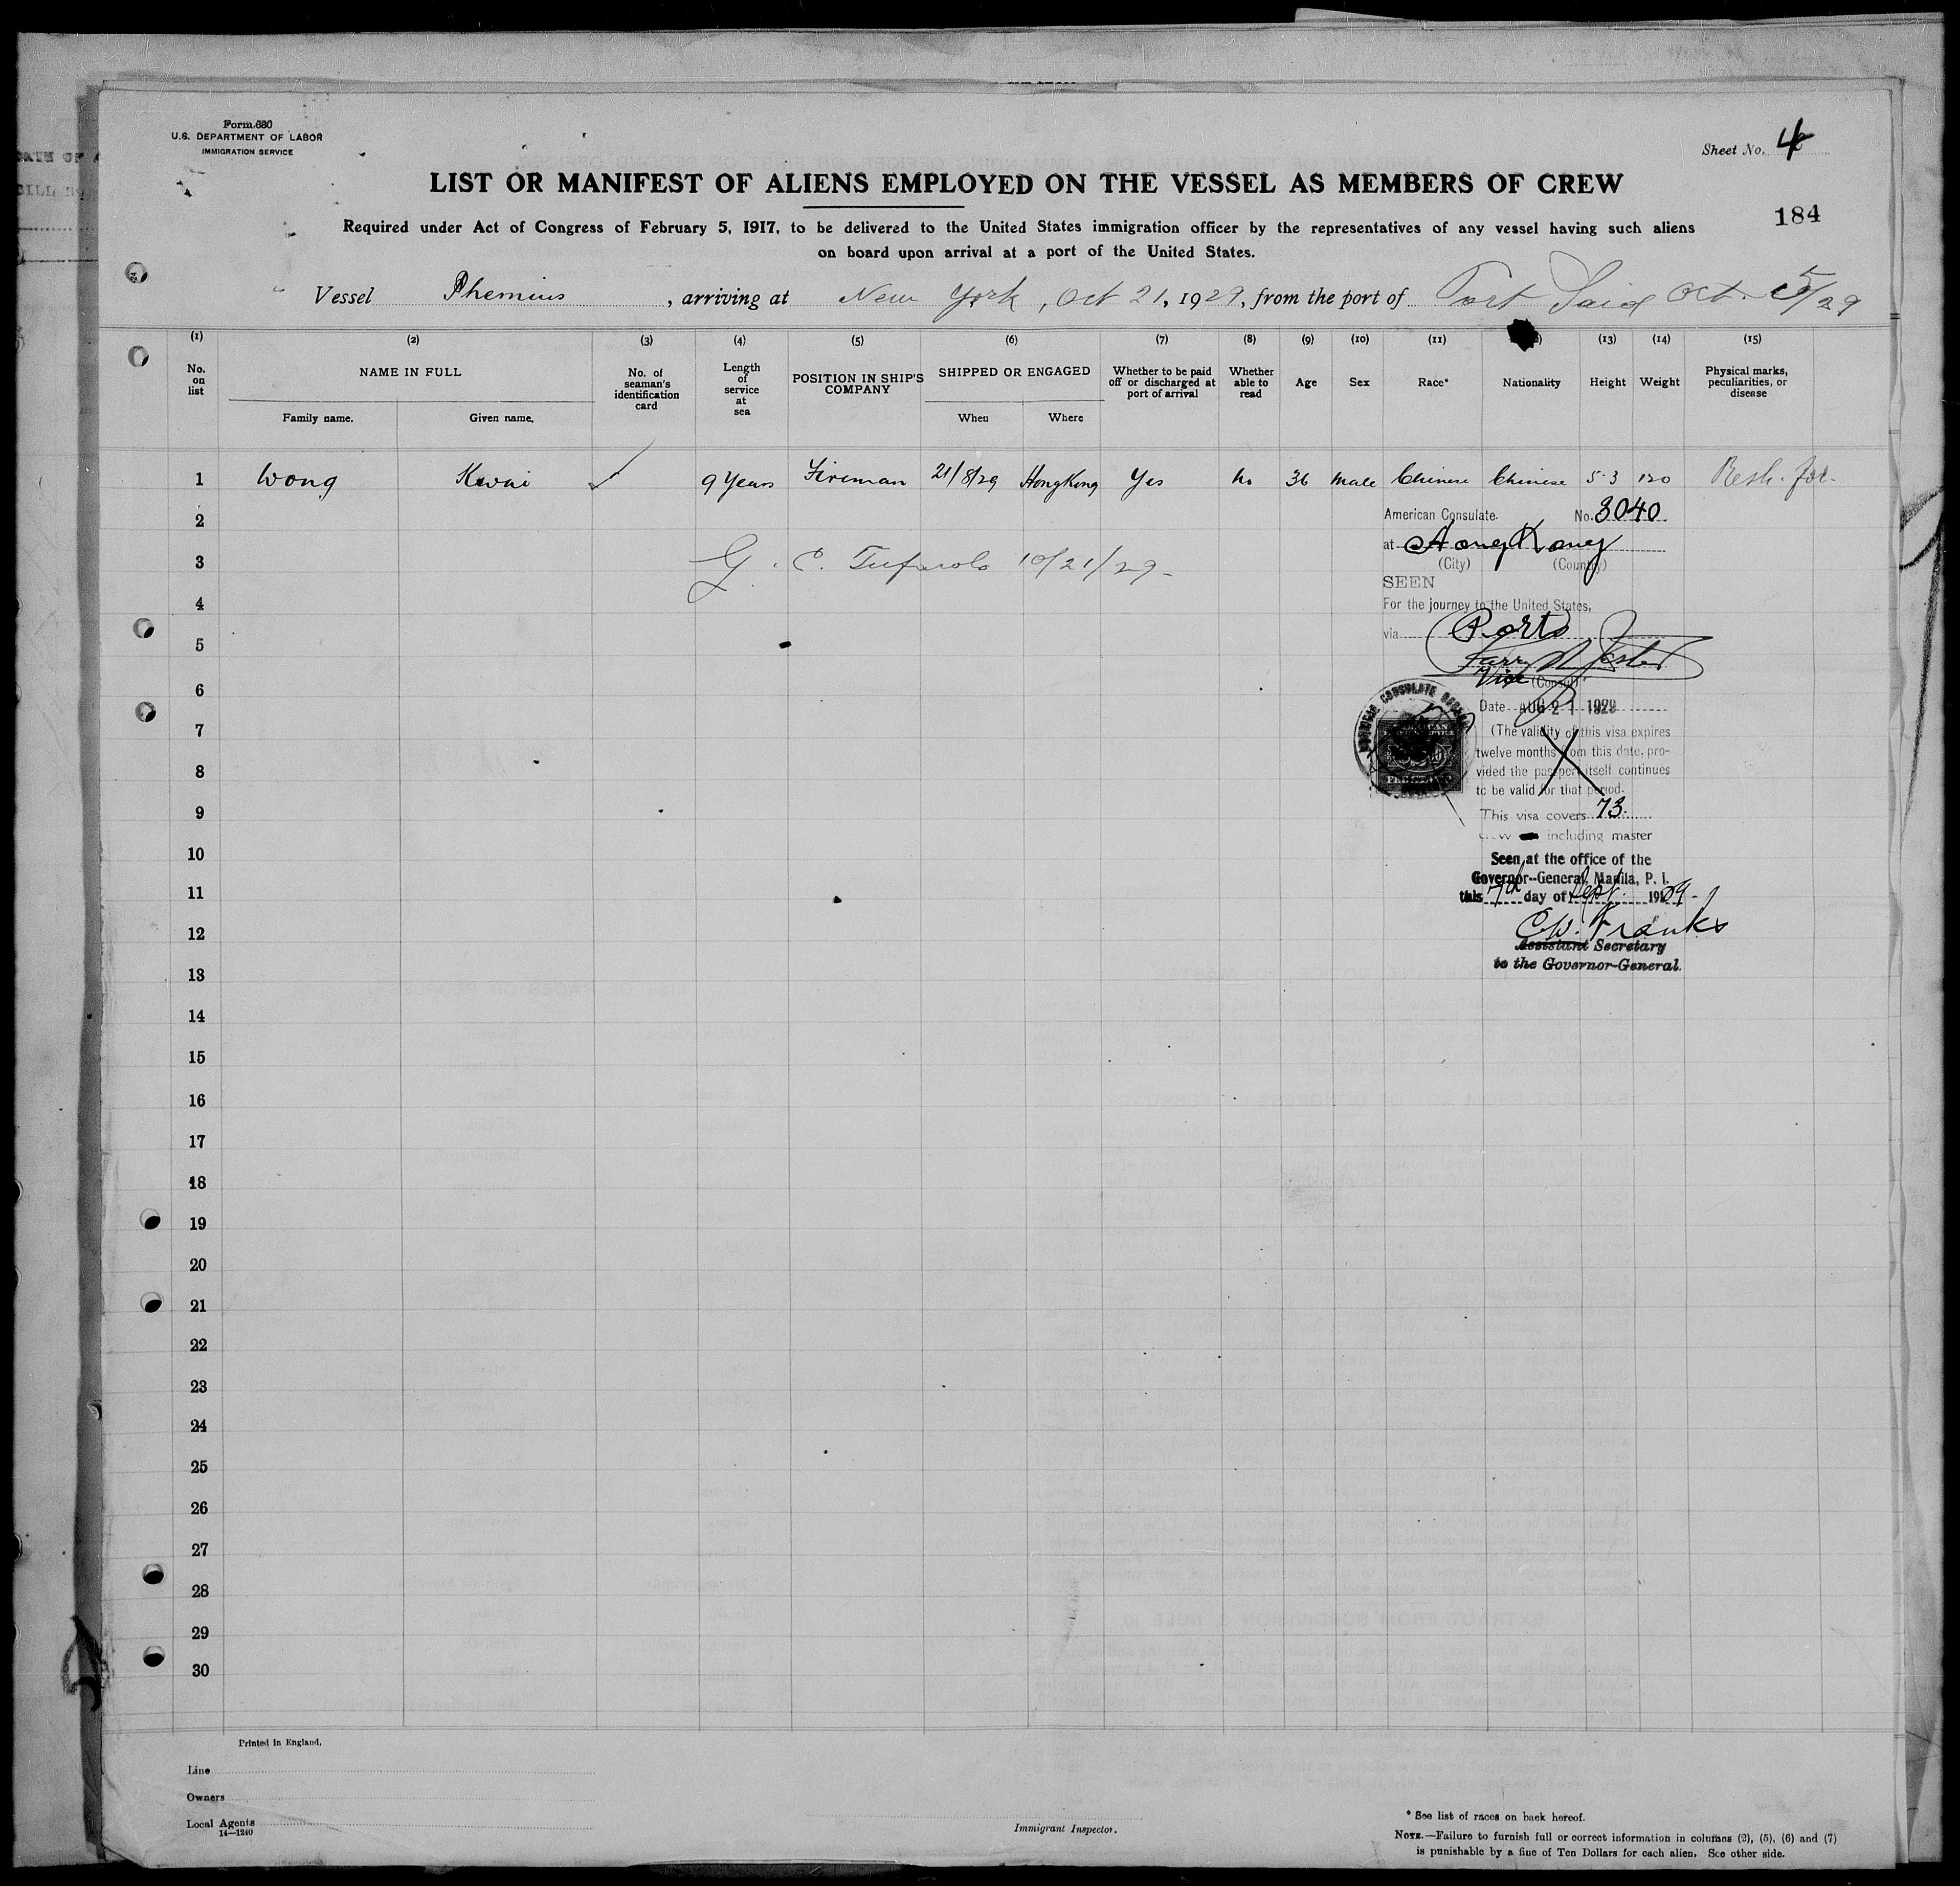 Form 680
U.S. DEPARTMENT OF LABOR
IMMIGRATION SERVICE
Sheet No. 4
LIST OR MANIFEST OF ALIENS EMPLOYED ON THE VESSEL AS MEMBERS OF CREW
184
Required under Act of Congress of February 5, 1917, to be delivered to the United States immigration officer by the representatives of any vessel having such aliens
on board upon arrival at a port of the United States.
Vessel Phemius, arriving at New York, Oct 21, 1929, from the port of Port Said Oct. 5/29
(1) (2) (3) (4) (5) (6) (7) (8) (9) (10) (11) (13) (14) (15)
No. on list
NAME IN FULL
Family name. Given name.
No. of seaman's identification card
Length of service at sea
POSITION IN SHIP'S COMPANY
SHIPPED OR ENGAGED
When Where
Whether to be paid off or discharged at port of arrival
Whether able to read
Age
Sex
Race*
Nationality
Height
Weight
Physical marks, peculiarities, or disease
1 Wong Kwai ✓ 9 Years Fireman 21/8/29 HongKong Yes No 36 Male Chinese Chinese 5·3 120
2
3
4
5
6
7
8
9
10
11
12
13
14
15
16
17
18
19
20
21
22
23
24
25
26
27
28
29
30
G. C. 10/21/29
American Consulate. No. 3040
at Hong Kong
(City) (Country)
SEEN
For the journey to the United States,
via Ports
Vice (Consul)
Date AUG 21 1929
(The validity of this visa expires
twelve months from this date, pro-
vided the passport itself continues
to be valid for that period.
This visa covers 73
crew including master
Seen at the office of the
Governor-General, Manila, P. I.
this 7th day of Sept. 1929.
C.W. Franks
Assistant Secretary
to the Governor-General.
Printed in England.
Line
Owners
Local Agents
14—1240
Immigrant Inspector.
* See list of races on back hereof.
NOTE.—Failure to furnish full or correct information in columns (2), (5), (6) and (7)
is punishable by a fine of Ten Dollars for each alien. See other side.